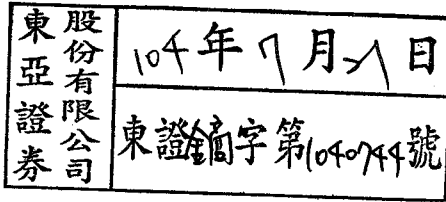 東亞證券
股份有限公司
104年7月21日
東證鏑字第1040744號